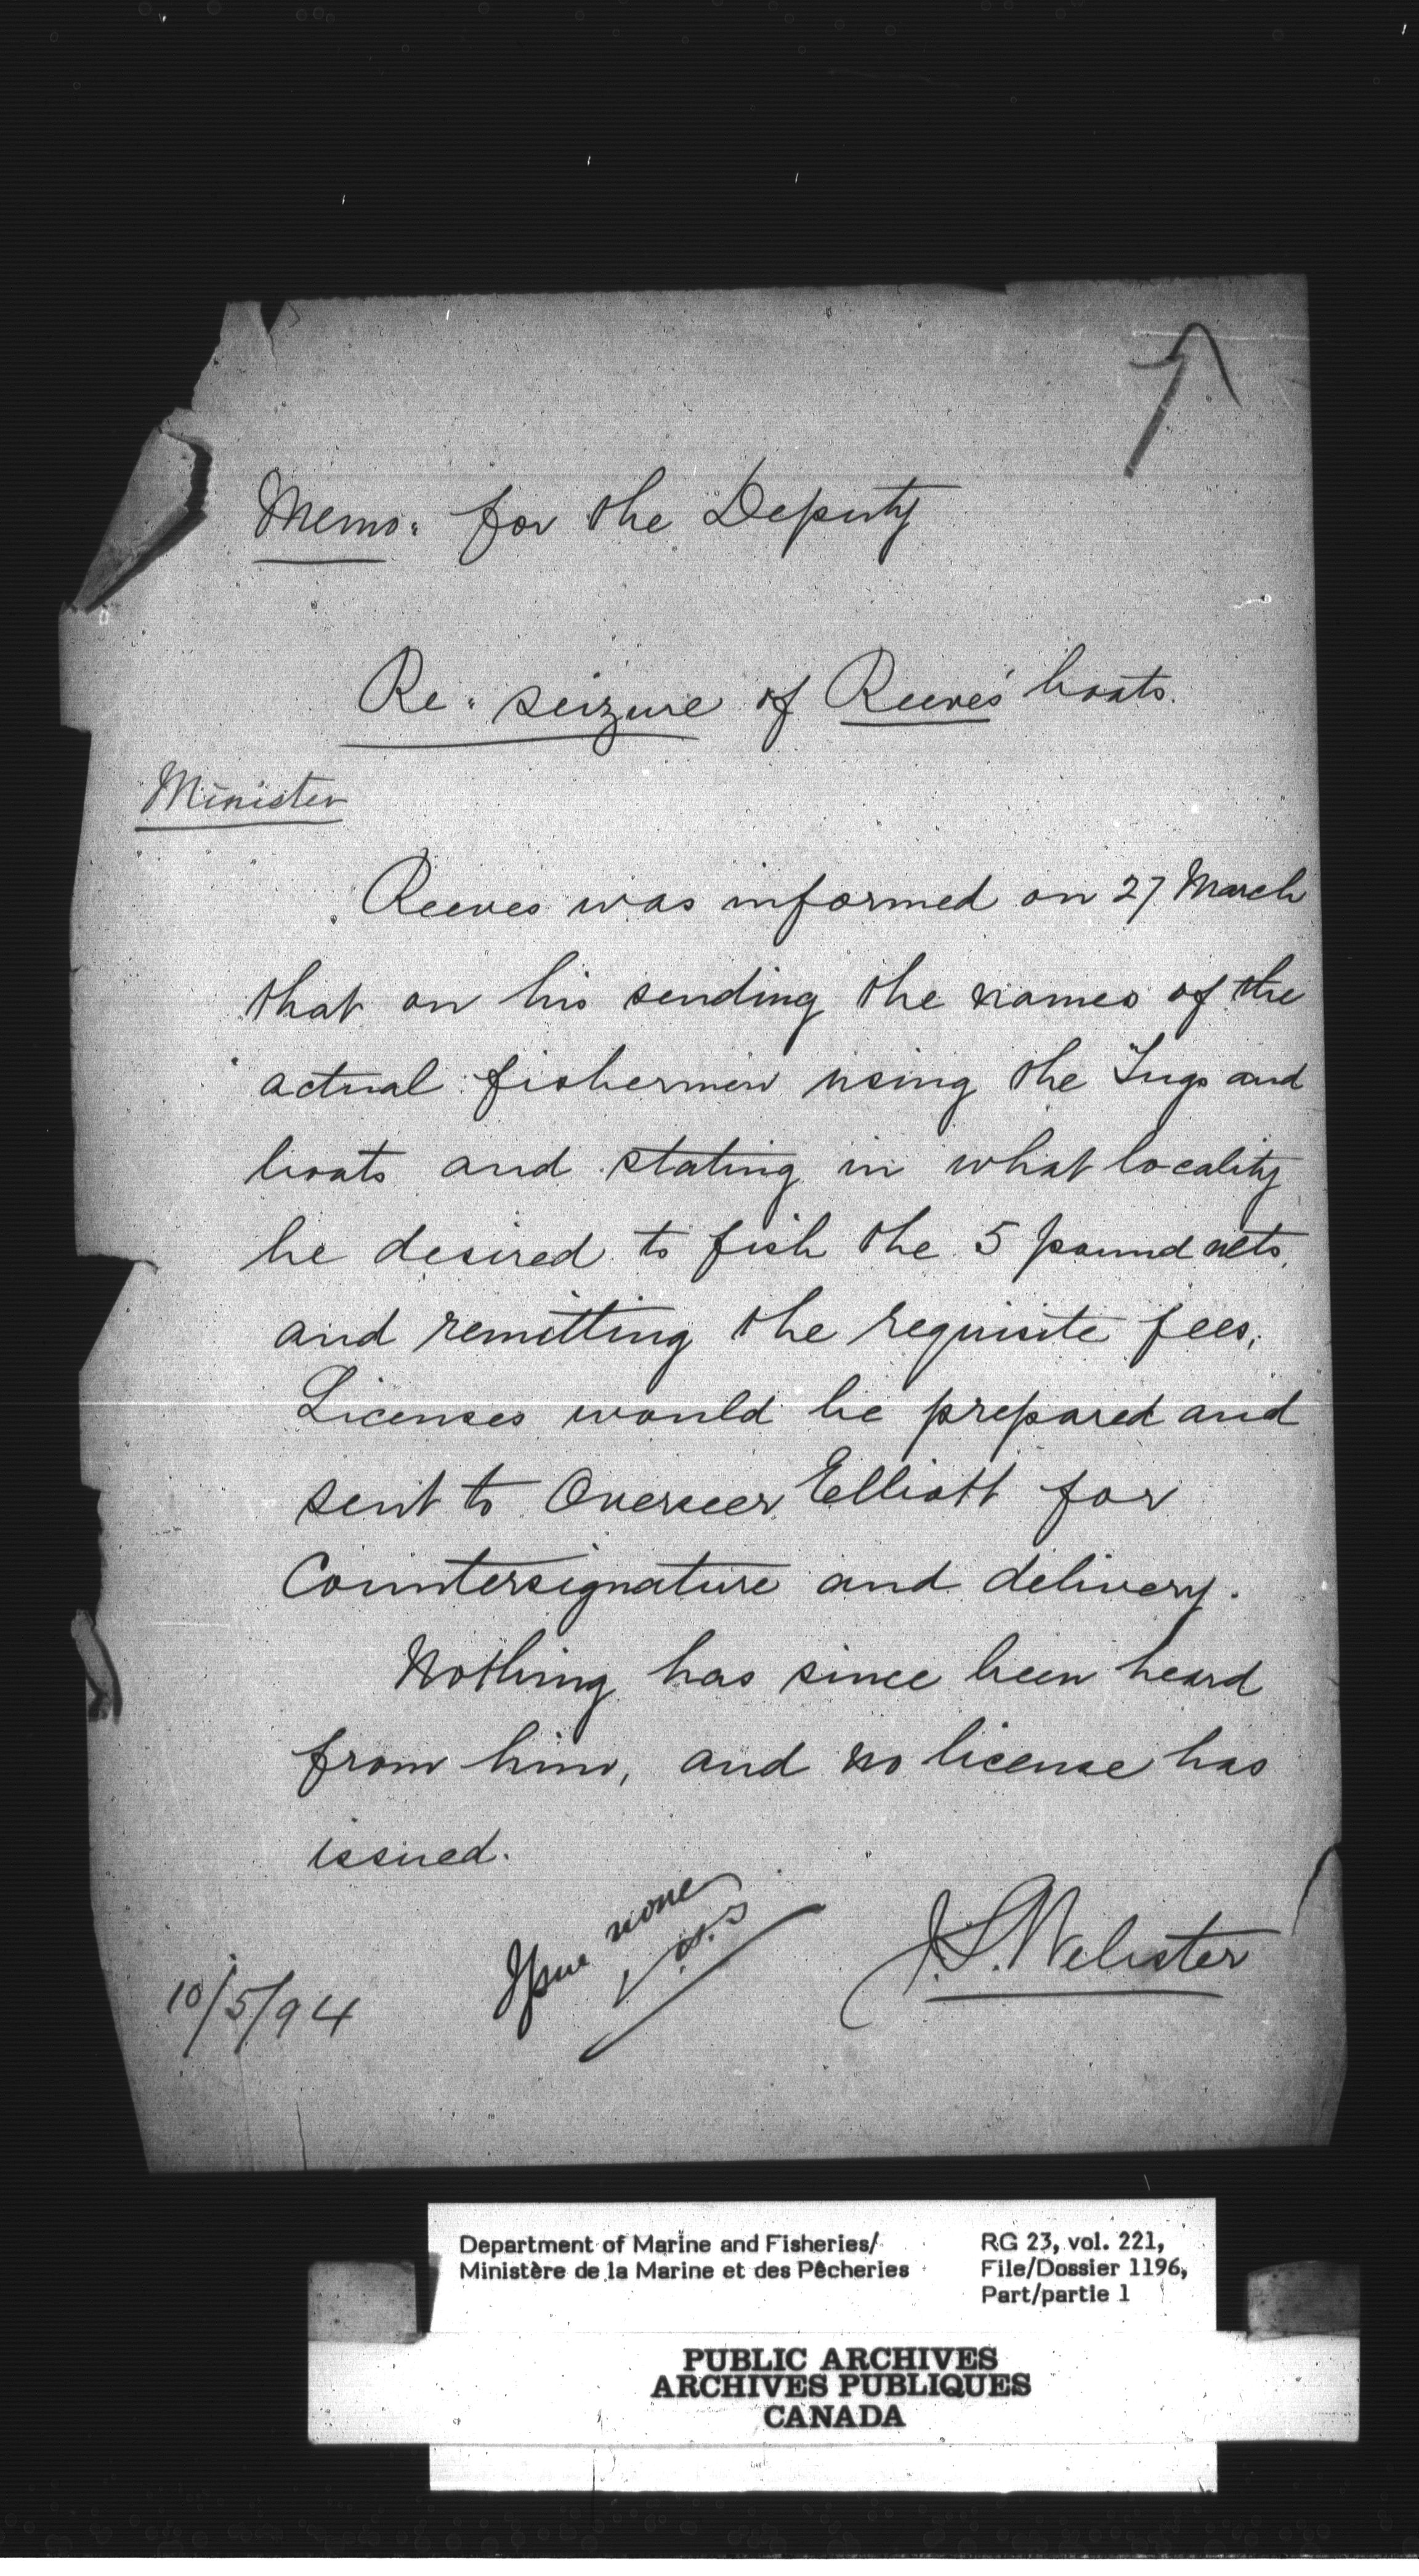 Memo. for the Deputy
Re. seizure of Reeves' boats.
Minister
Reeves was informed on 27 March
that on his sending the names of the
actual fishermen using the Tugs and
boats and stating in what locality
he desired to fish the 5 pound nets,
and remitting the requisite fees,
Licenses would be prepared and
sent to Overseer Elliott for
Countersignature and delivery.
Nothing has since been heard
from him, and no license has
issued.
Issue none
J.S. Webster
10/5/94
Department of Marine and Fisheries/
Ministère de la Marine et des Pêcheries
RG 23, vol. 221,
File/Dossier 1196,
Part/partie 1
PUBLIC ARCHIVES
ARCHIVES PUBLIQUES
CANADA